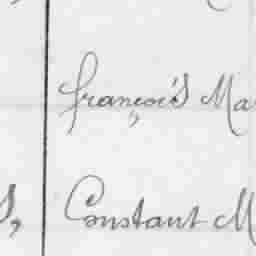 françois Ma
s, Constant M